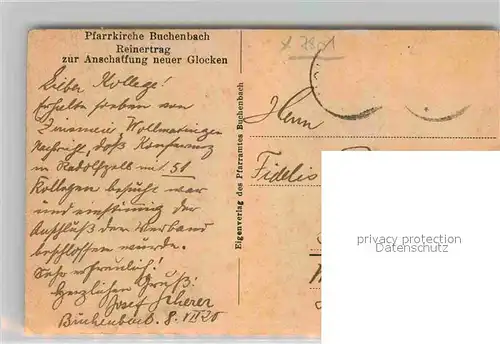 Pfarrkirche Buchenbach
Reinertrag
zur Anschaffung neuer Glocken
Lieber Kollege!
Erhalte soeben von
Wollmatingen
Nachricht, daß Konferenz
in Radolfzell mit 51
Kollegen besucht war
und einstimmig der
Anschluß den Verband
beschlossen wurde.
Sehr erfreulich!
Herzlichen Gruß:
Josef Scherer
Buchenbach. 8.
Eigenverlag des Pfarramtes Buchenbach
Herrn
Fidelis
privacy protection
Datenschutz